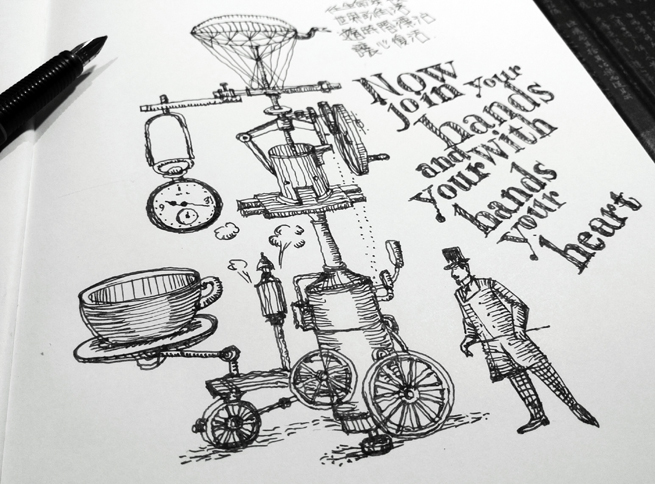 Now
join your
hands
and with
your
hands
your
heart